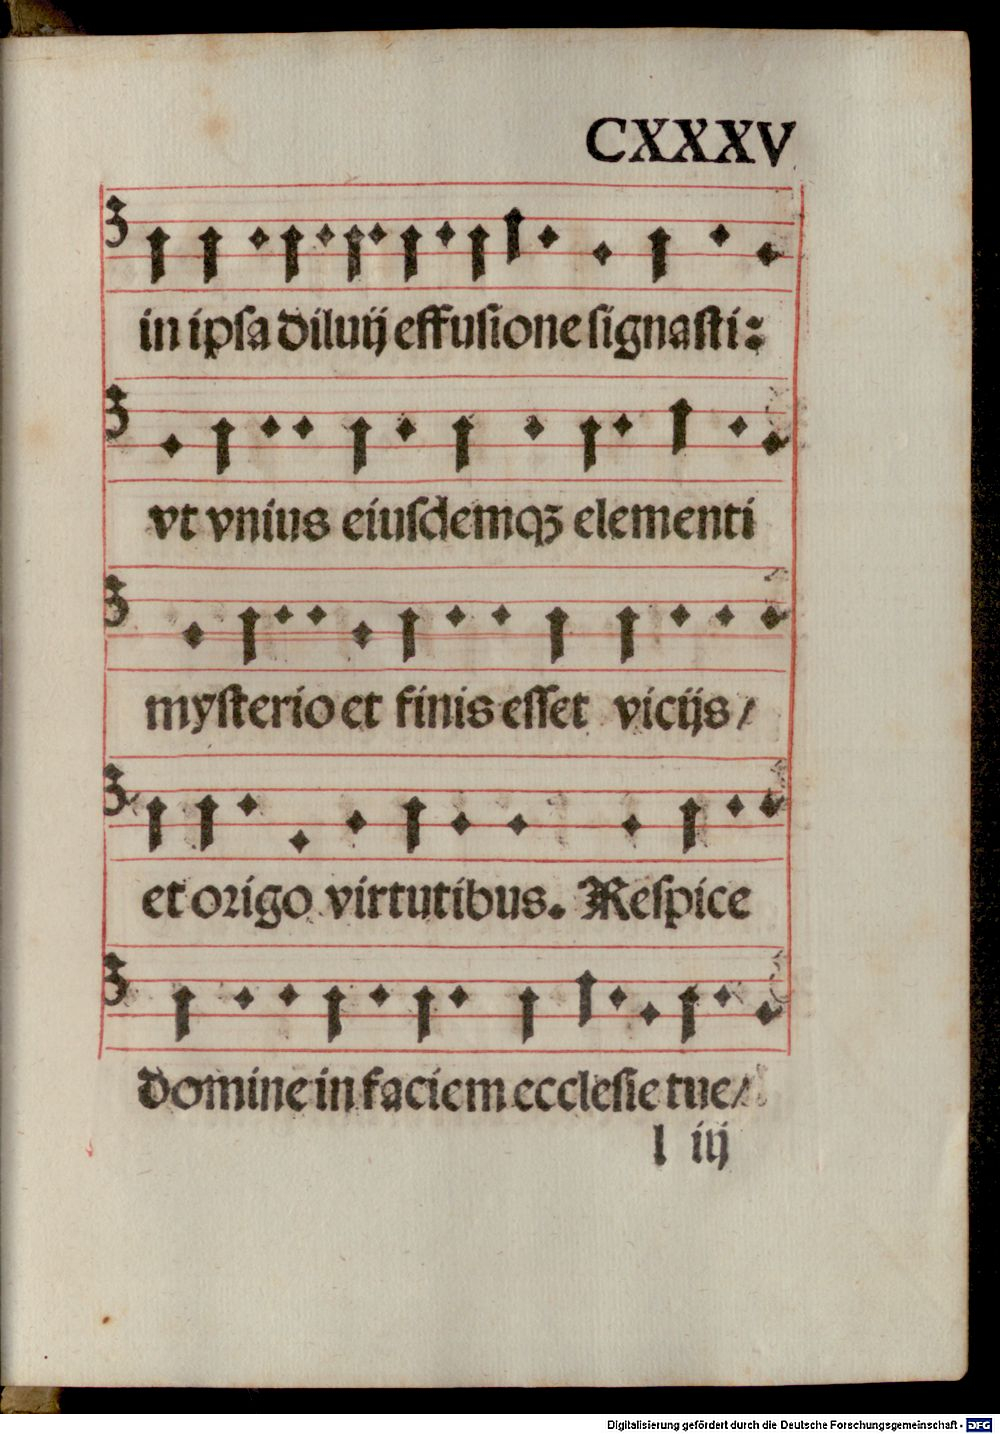 CXXXV
in ipsa diluij effusione signasti:
vt vnius eiusdemqꝫ elementi
mysterio et finis esset vicijs /
et origo virtutibus. Respice
domine in faciem ecclesie tue /
l iij
Digitalisierung gefördert durch die Deutsche Forschungsgemeinschaft - DFG